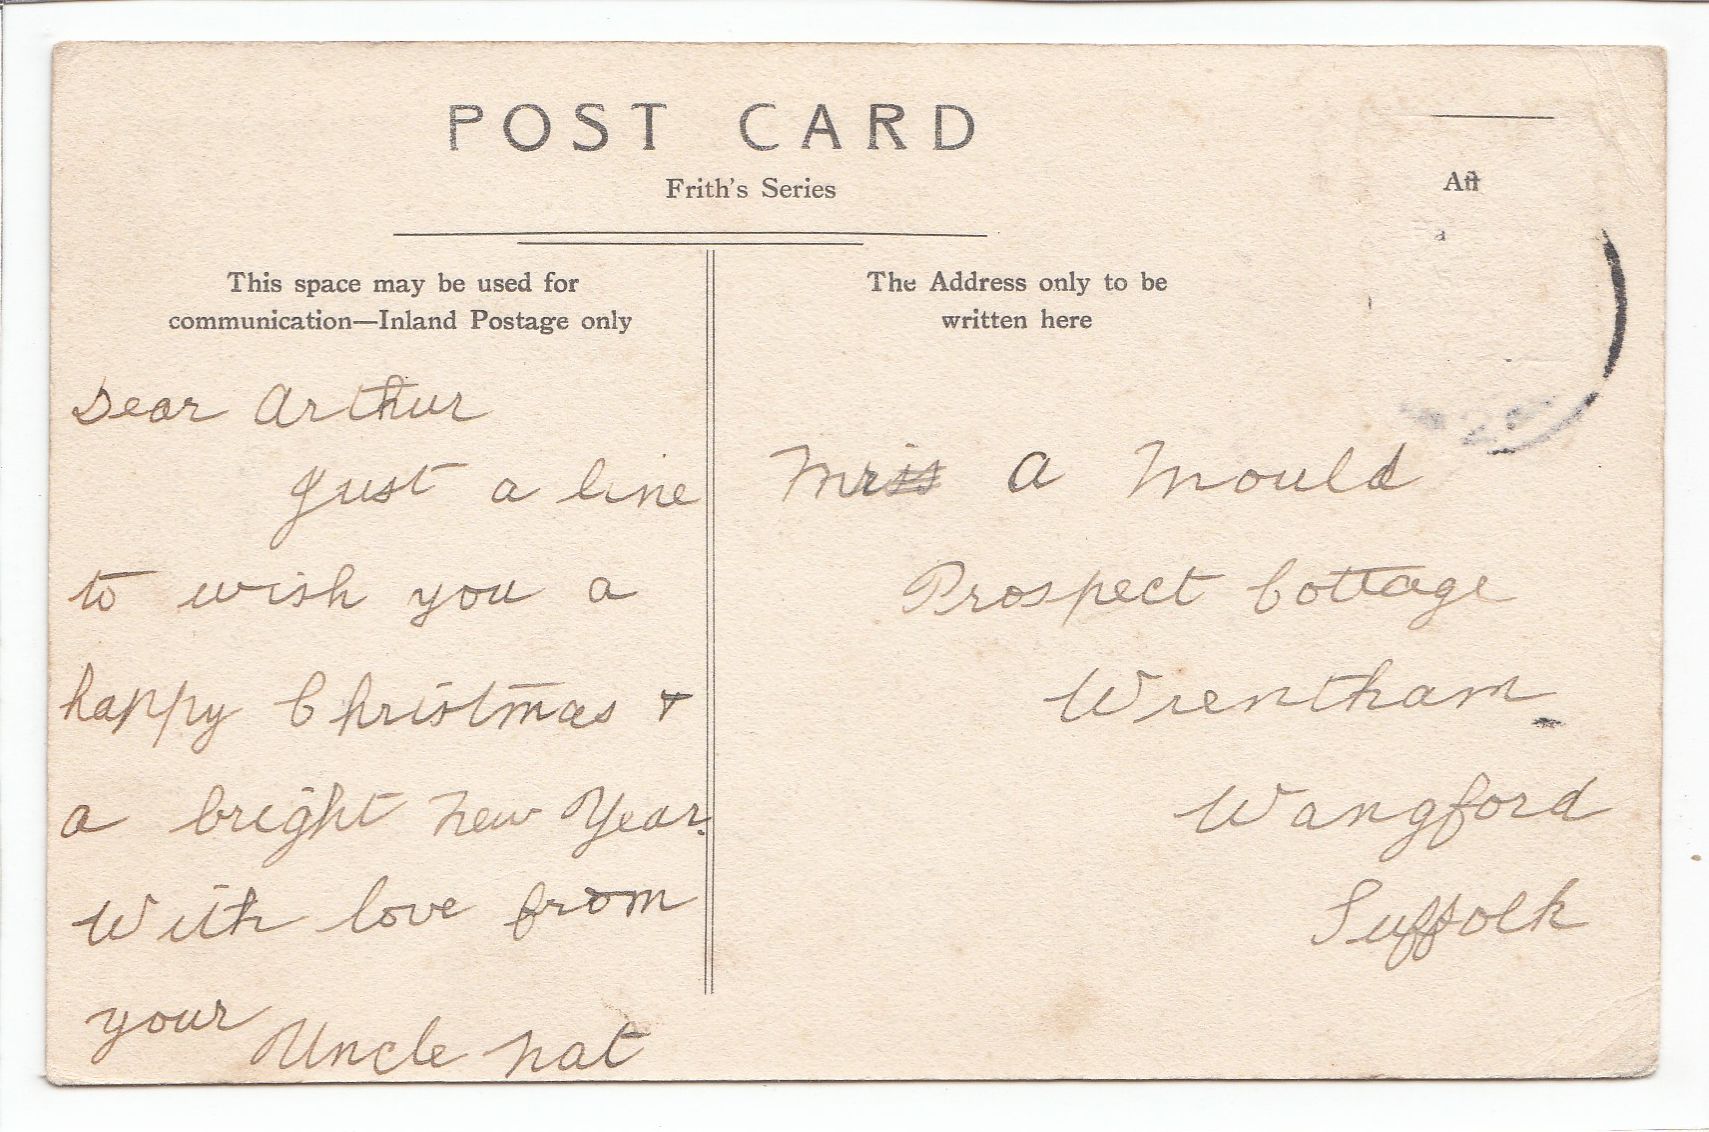 POST CARD
Frith's Series
This space may be used for
communication—Inland Postage only
Dear Arthur
just a line
to wish you a
happy Christmas +
a bright new Year.
With love from
your Uncle nat
The Address only to be
written here
A Mould
Prospect Cottage
Wrentham
Wangford
Suffolk